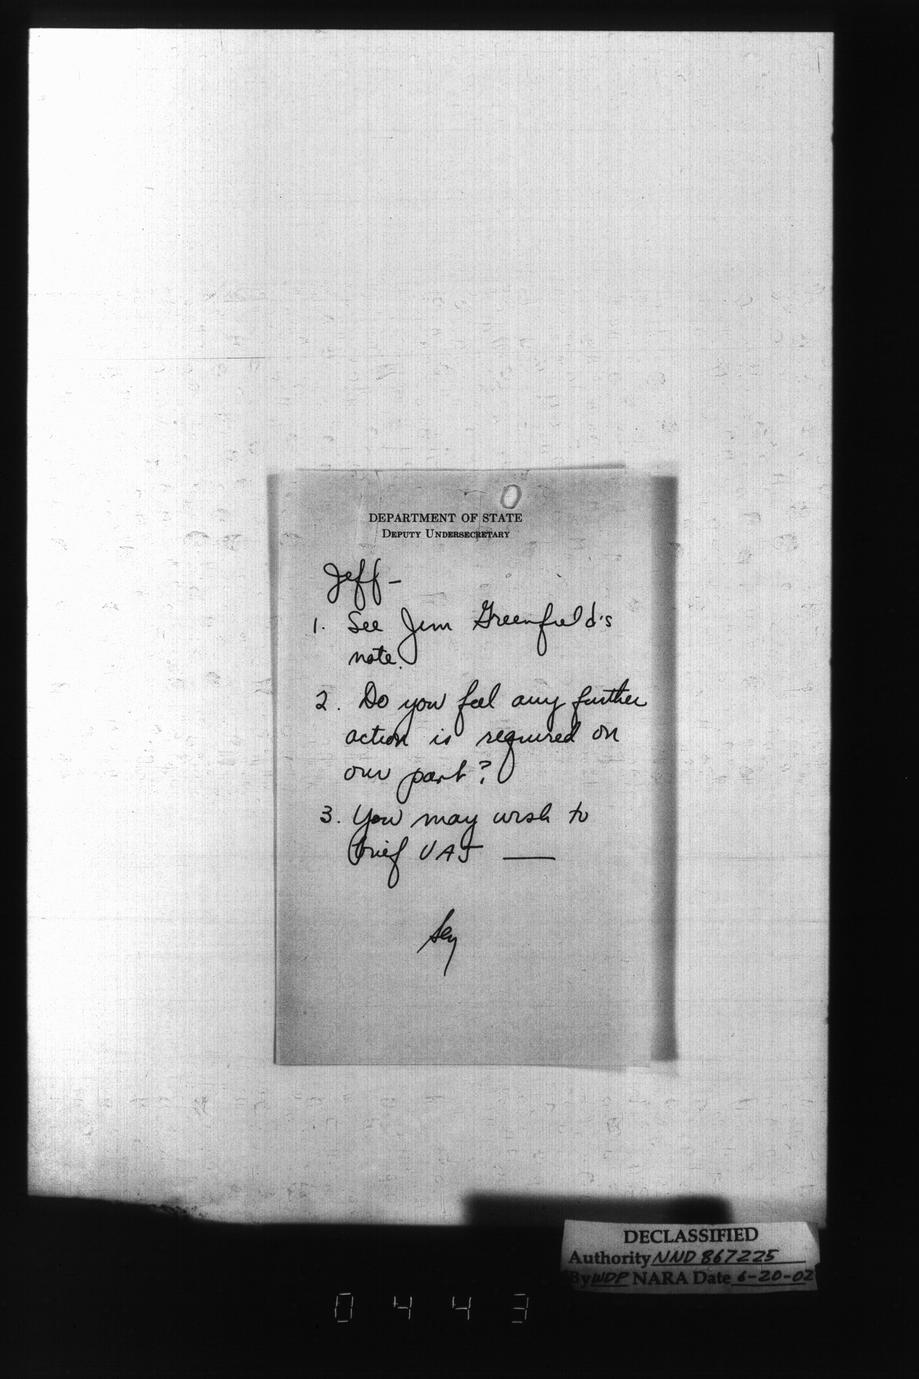 O
DEPARTMENT OF STATE
DEPUTY UNDERSECRETARY
Jeff-
1. See Jim Greenfield's
note.
2. Do you feel any further
action is required on
our part?
3. You may wish to
brief UAJ —
Sey
DECLASSIFIED
Authority NND 867225
By WDP NARA Date 6-20-02
0443